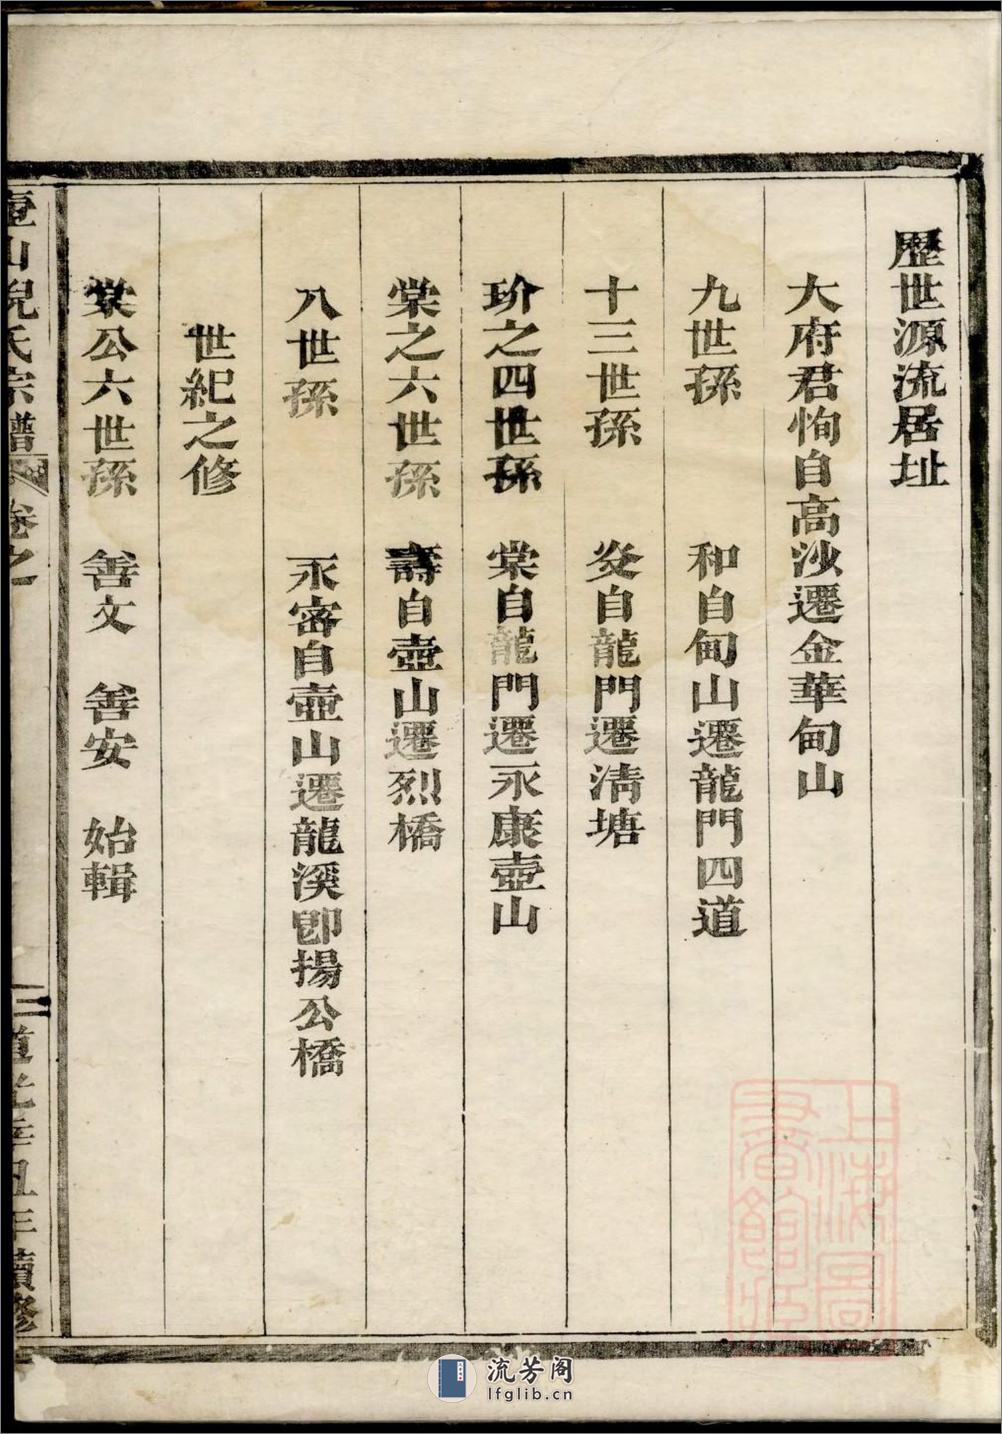 歷世源流居址
大府君恂自高沙遷金華甸山
九世孫 和自甸山遷龍門四道
十三世孫 炎自龍門遷清塘
玠之四世孫 棠自龍門遷永康壺山
棠之六世孫 壽自壺山遷烈橋
八世孫 永審自壺山遷龍溪卽揚公橋
世紀之修
棠公六世孫 善文 善安 始輯
壺山倪氏宗譜 卷之 二 道光辛丑年續修
上海圖書館藏
流芳阁
lfglib.cn